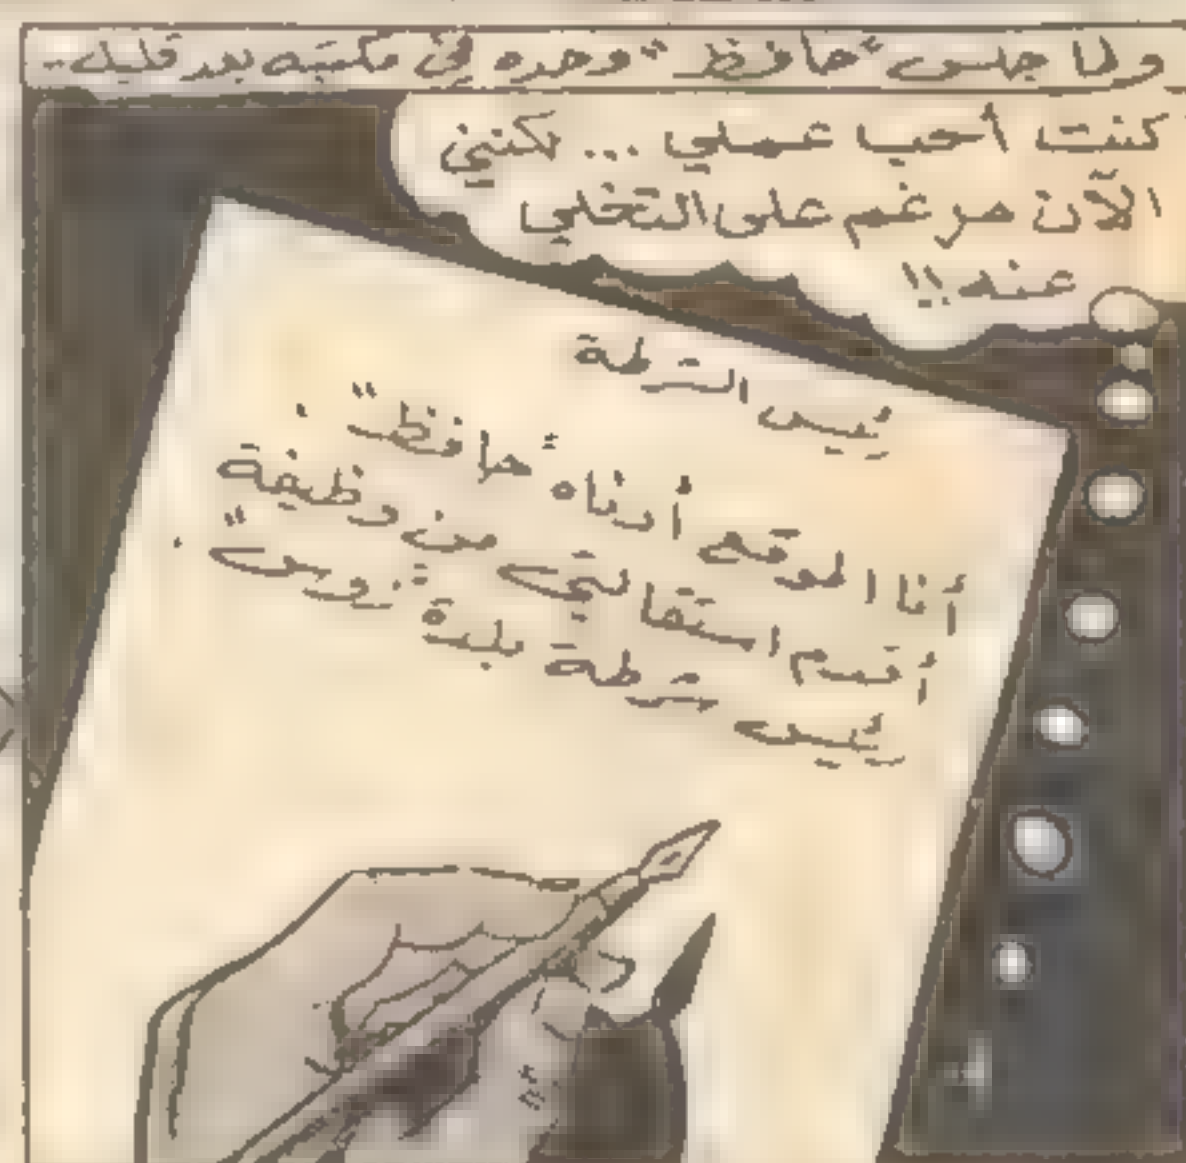 ولما جلس "حافظ" وحده في مكتبه بعد قليل..
كنت أحب عملي ... لكنني
الآن مرغم على التخلي
عنه !!
رئيس الشرطة
أنا الموقع أدناه "حافظ" .
أقدم استقالتي من وظيفة
رئيس شرطة بلدة "زويس" .